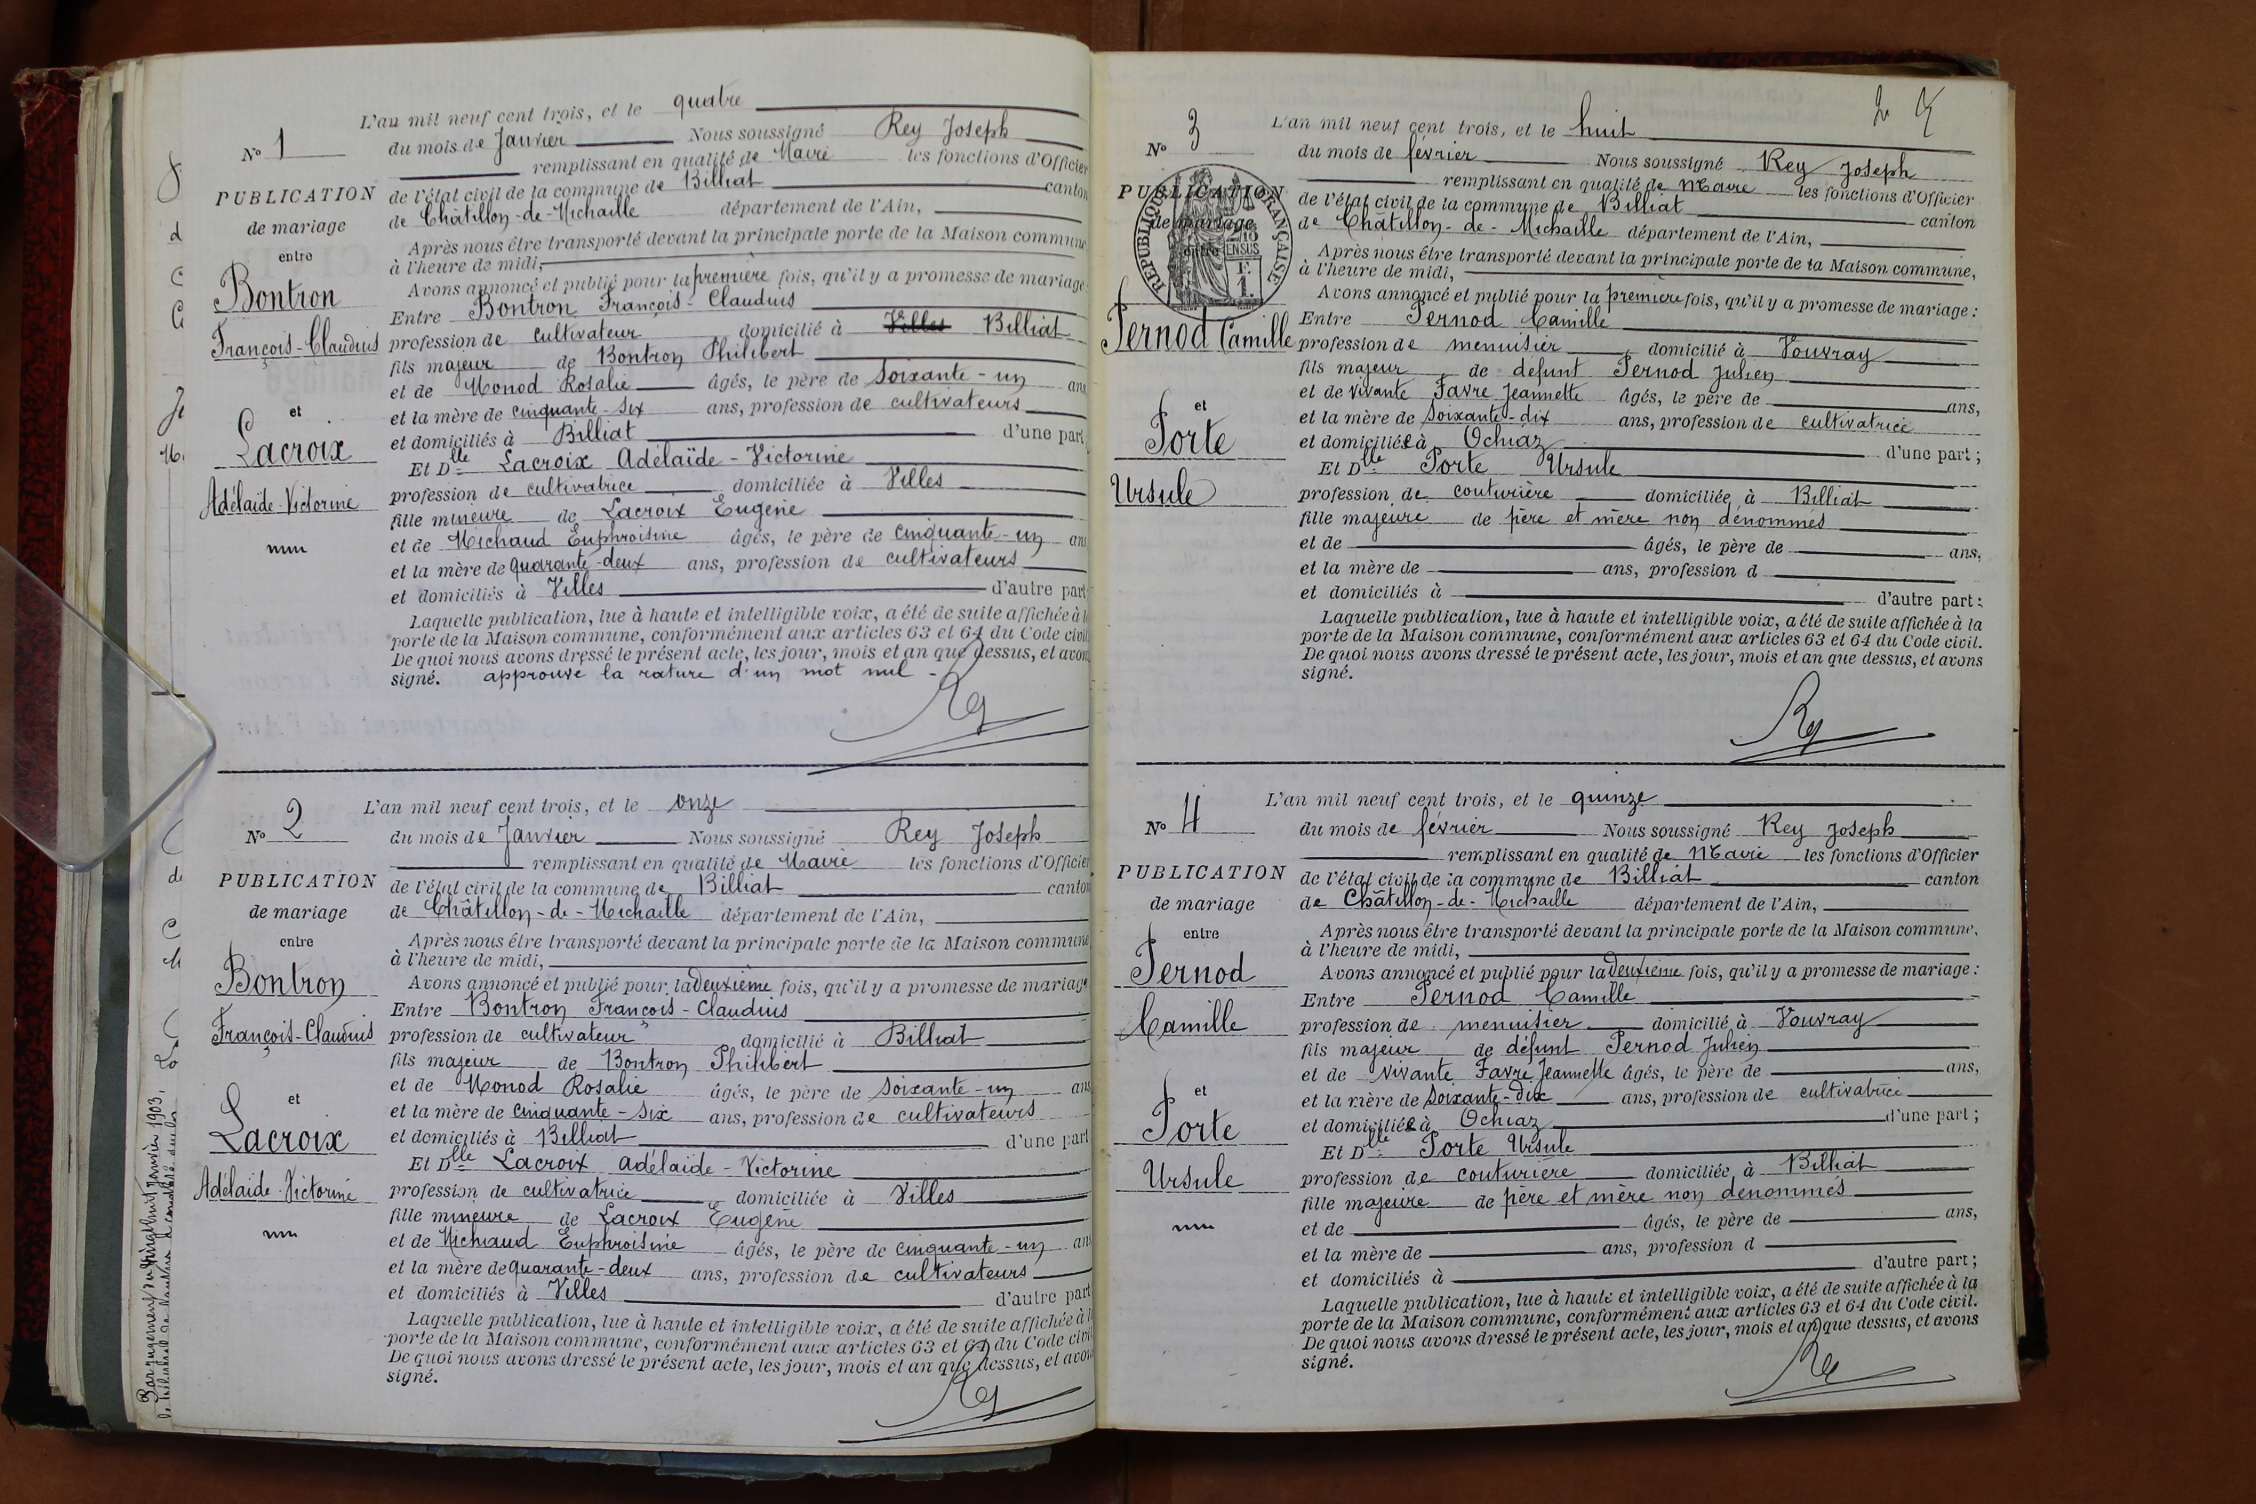 L'an mil neuf cent trois, et le quatre
N° 1 du mois de Janvier Nous soussigné Rey Joseph
remplissant en qualité de Maire les fonctions d'Officier
PUBLICATION de l'état civil de la commune de Billiat canton
de mariage de Châtillon-de-Michaille département de l'Ain,
entre Après nous être transporté devant la principale porte de la Maison commune
à l'heure de midi,
Avons annoncé et publié pour la première fois, qu'il y a promesse de mariage
Bontron Entre Bontron François-Claudius
François-Claudius profession de cultivateur domicilié à Villes Billiat
fils majeur de Bontron Philibert
et de Monod Rosalie âgés, le père de soixante-un ans
et et la mère de cinquante-six ans, profession de cultivateurs
Lacroix et domiciliés à Billiat d'une part
Et Dlle Lacroix Adélaïde-Victorine
Adélaïde-Victorine profession de cultivatrice domiciliée à Villes
fille mineure de Lacroix Eugène
et de Michaud Euphroisine âgés, le père de cinquante-un ans
et la mère de quarante-deux ans, profession de cultivateurs
et domiciliés à Villes d'autre part
Laquelle publication, lue à haute et intelligible voix, a été de suite affichée à la
porte de la Maison commune, conformément aux articles 63 et 64 du Code civil
De quoi nous avons dressé le présent acte, les jour, mois et an que dessus, et avons
signé. approuvé la rature d'un mot nul -
Rey
L'an mil neuf cent trois, et le onze
N° 2 du mois de Janvier Nous soussigné Rey Joseph
remplissant en qualité de Maire les fonctions d'Officier
PUBLICATION de l'état civil de la commune de Billiat canton
de mariage de Châtillon-de-Michaille département de l'Ain,
entre Après nous être transporté devant la principale porte de la Maison commune
à l'heure de midi,
Bontron Avons annoncé et publié pour la deuxième fois, qu'il y a promesse de mariage
Entre Bontron François-Claudius
François-Claudius profession de cultivateur domicilié à Billiat
fils majeur de Bontron Philibert
et de Monod Rosalie âgés, le père de soixante-un ans
et et la mère de cinquante-six ans, profession de cultivateurs
Lacroix et domiciliés à Billiat d'une part
Et Dlle Lacroix Adélaïde-Victorine
Adélaïde-Victorine profession de cultivatrice domiciliée à Villes
fille mineure de Lacroix Eugène
et de Michaud Euphroisine âgés, le père de cinquante-un ans
et la mère de quarante-deux ans, profession de cultivateurs
et domiciliés à Villes d'autre part
Laquelle publication, lue à haute et intelligible voix, a été de suite affichée à la
porte de la Maison commune, conformément aux articles 63 et 64 du Code civil
De quoi nous avons dressé le présent acte, les jour, mois et an que dessus, et avons
signé.
Rey
2
L'an mil neuf cent trois, et le huit
N° 3 du mois de février Nous soussigné Rey Joseph
remplissant en qualité de Maire les fonctions d'Officier
PUBLICATION de l'état civil de la commune de Billiat canton
de mariage de Châtillon-de-Michaille département de l'Ain,
entre Après nous être transporté devant la principale porte de la Maison commune,
à l'heure de midi,
RÉPUBLIQUE FRANÇAISE
Avons annoncé et publié pour la première fois, qu'il y a promesse de mariage :
Entre Pernod Camille
Pernod Camille profession de menuisier domicilié à Vouvray
fils majeur de défunt Pernod Julien
et de vivante Favre Jeannette âgés, le père de ans,
et et la mère de soixante-dix ans, profession de cultivatrice
Porte et domiciliée à Ochiaz d'une part ;
Et Dlle Porte Ursule
Ursule profession de couturière domiciliée à Billiat
fille majeure de père et mère non dénommés
et de âgés, le père de ans,
et la mère de ans, profession d
et domiciliés à d'autre part ;
Laquelle publication, lue à haute et intelligible voix, a été de suite affichée à la
porte de la Maison commune, conformément aux articles 63 et 64 du Code civil.
De quoi nous avons dressé le présent acte, les jour, mois et an que dessus, et avons
signé.
Rey
L'an mil neuf cent trois, et le quinze
N° 4 du mois de février Nous soussigné Rey Joseph
remplissant en qualité de Maire les fonctions d'Officier
PUBLICATION de l'état civil de la commune de Billiat canton
de mariage de Châtillon-de-Michaille département de l'Ain,
entre Après nous être transporté devant la principale porte de la Maison commune,
à l'heure de midi,
Pernod Avons annoncé et publié pour la deuxième fois, qu'il y a promesse de mariage :
Entre Pernod Camille
Camille profession de menuisier domicilié à Vouvray
fils majeur de défunt Pernod Julien
et de vivante Favre Jeannette âgés, le père de ans,
et et la mère de soixante-dix ans, profession de cultivatrice
Porte et domiciliée à Ochiaz d'une part ;
Et Dlle Porte Ursule
Ursule profession de couturière domiciliée à Billiat
fille majeure de père et mère non dénommés
et de âgés, le père de ans,
et la mère de ans, profession d
et domiciliés à d'autre part ;
Laquelle publication, lue à haute et intelligible voix, a été de suite affichée à la
porte de la Maison commune, conformément aux articles 63 et 64 du Code civil.
De quoi nous avons dressé le présent acte, les jour, mois et an que dessus, et avons
signé.
Rey